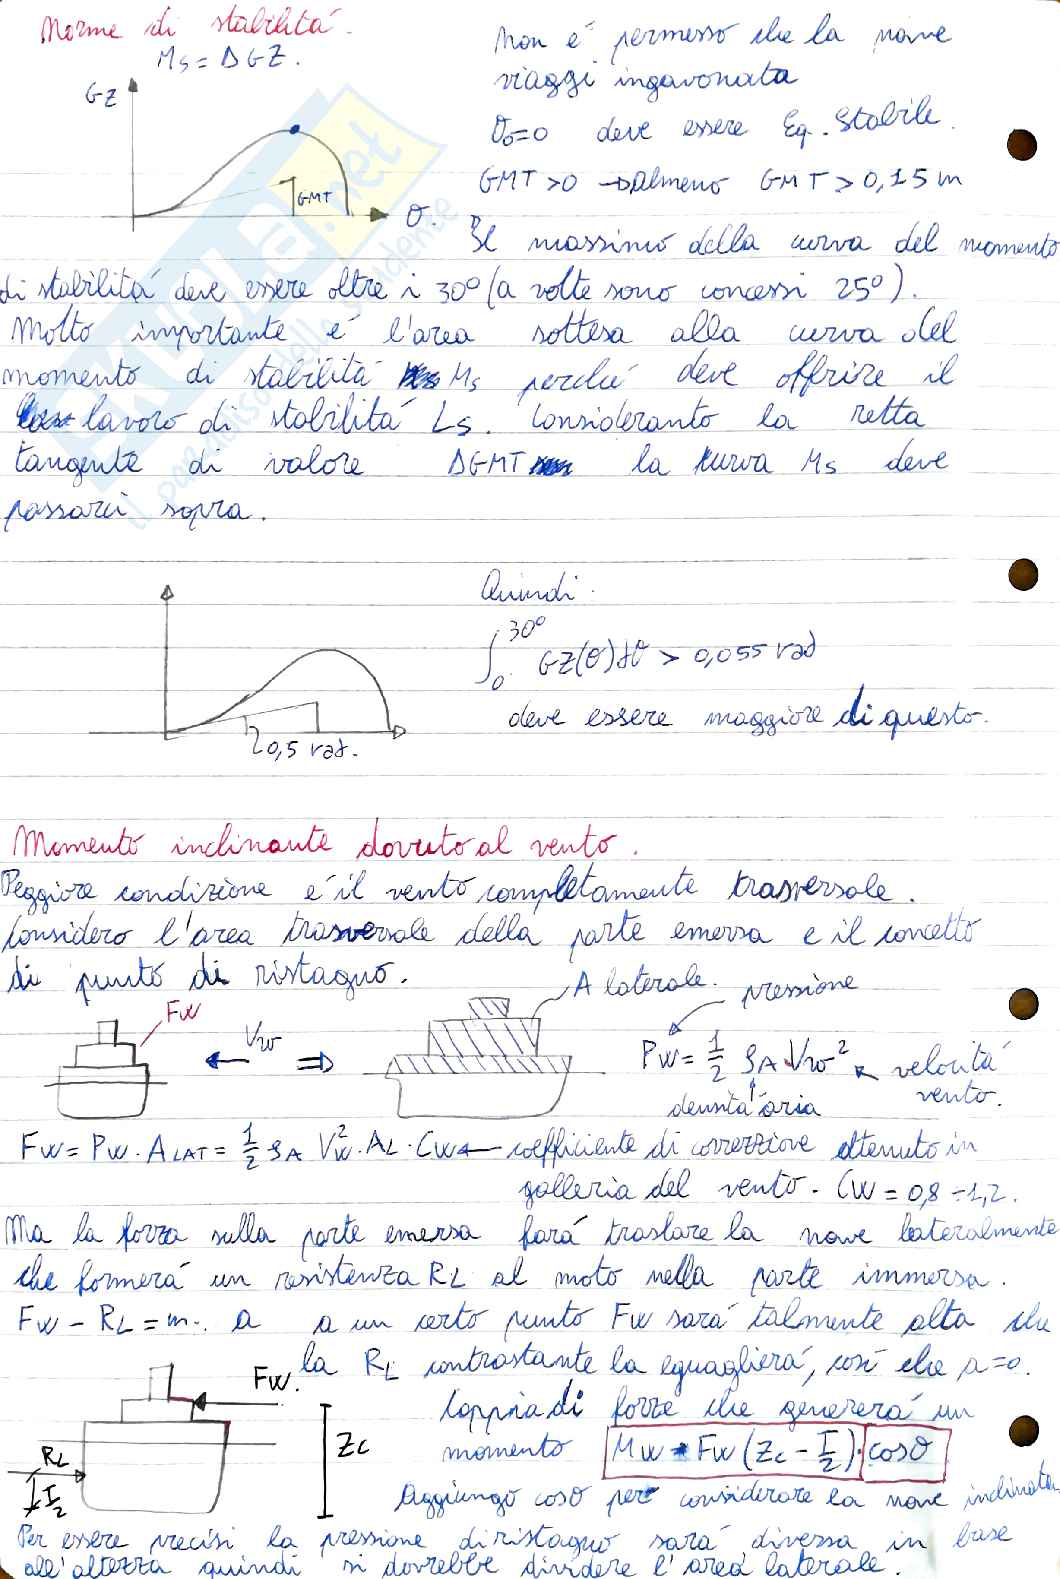 Norme di stabilitá.
Ms = ΔGZ.
GZ
GMT
θ.
Non é permesso che la nave
viaggi ingavonata
θo=0 deve essere Eq. Stabile.
GMT >0 → Almeno GMT > 0,15 m
Il massimo della curva del momento
di stabilitá deve essere oltre i 30° (a volte sono concessi 25°).
Molto importante é l'area sottesa alla curva del
momento di stabilitá Ms perché deve offrire il
lavoro di stabilitá Ls. Consideranto la retta
tangente di valore ΔGMT la curva Ms deve
passarci sopra.
Quindi:
∫₀^30° GZ(θ)dθ > 0,055 rad
deve essere maggiore di questo.
0,5 rad.
Momento inclinante dovuto al vento.
Peggiore condizione é il vento completamente trasversale.
Considero l'area trasversale della parte emersa e il concetto
di punto di ristagno.
A laterale.
pressione
Fw
Vw
Pw = 1/2 ρA Vw²
velocitá
vento.
densitá aria
Fw = Pw · ALAT = 1/2 ρA Vw² · AL · Cw ← coefficiente di correzione ottenuto in
galleria del vento. Cw = 0,8 ÷ 1,2.
Ma la forza sulla parte emersa fará traslare la nave lateralmente
che formerá un resistenza RL al moto nella parte immersa.
Fw − RL = m · a a un certo punto Fw sará talmente alta che
la RL contrastante la eguaglierá, cosí che a=0.
Fw.
Coppia di forze che genererá un
Zc
momento Mw = Fw (Zc − T/2) · cosθ
RL
T/2
Aggiungo cosθ per considerare la nave inclinata.
Per essere precisi la pressione di ristagno sará diversa in base
all'altezza quindi si dovrebbe dividere l'area laterale.
EKUOLA.net
il paradiso dello studente